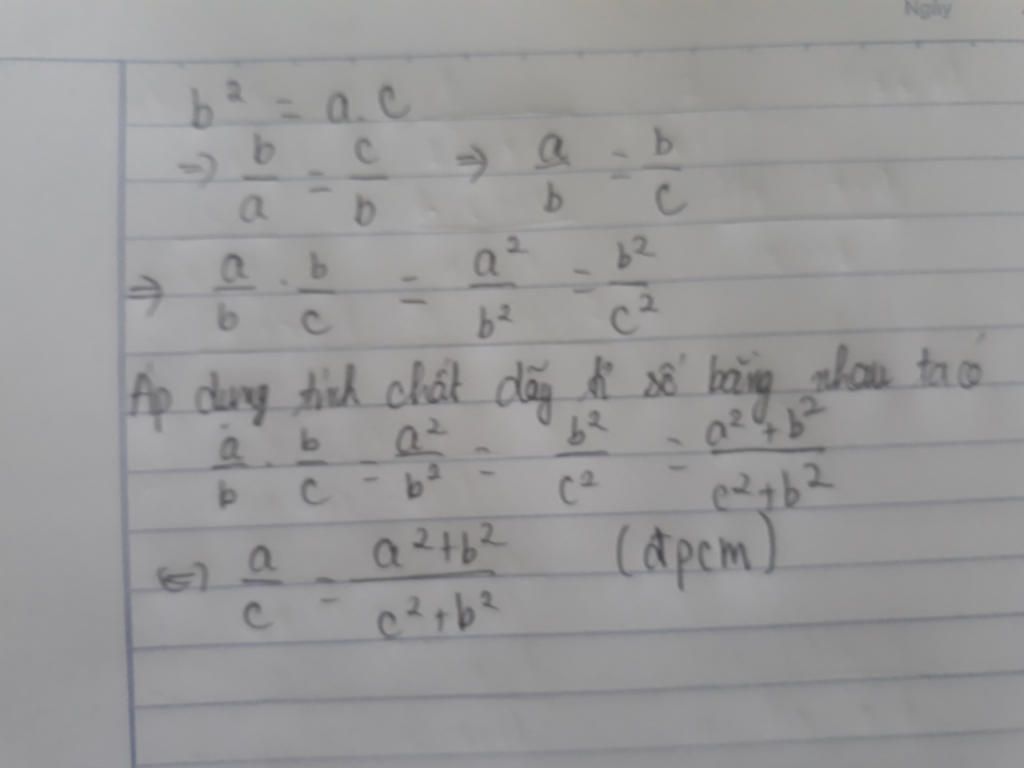 Ngày
b² = a.c
=> b/a = c/b => a/b = b/c
=> a/b . b/c = a²/b² = b²/c²
Áp dụng tính chất dãy tỉ số bằng nhau ta có
a/b . b/c = a²/b² = b²/c² = a²+b²/c²+b²
<=> a/c = a²+b²/c²+b² (đpcm)